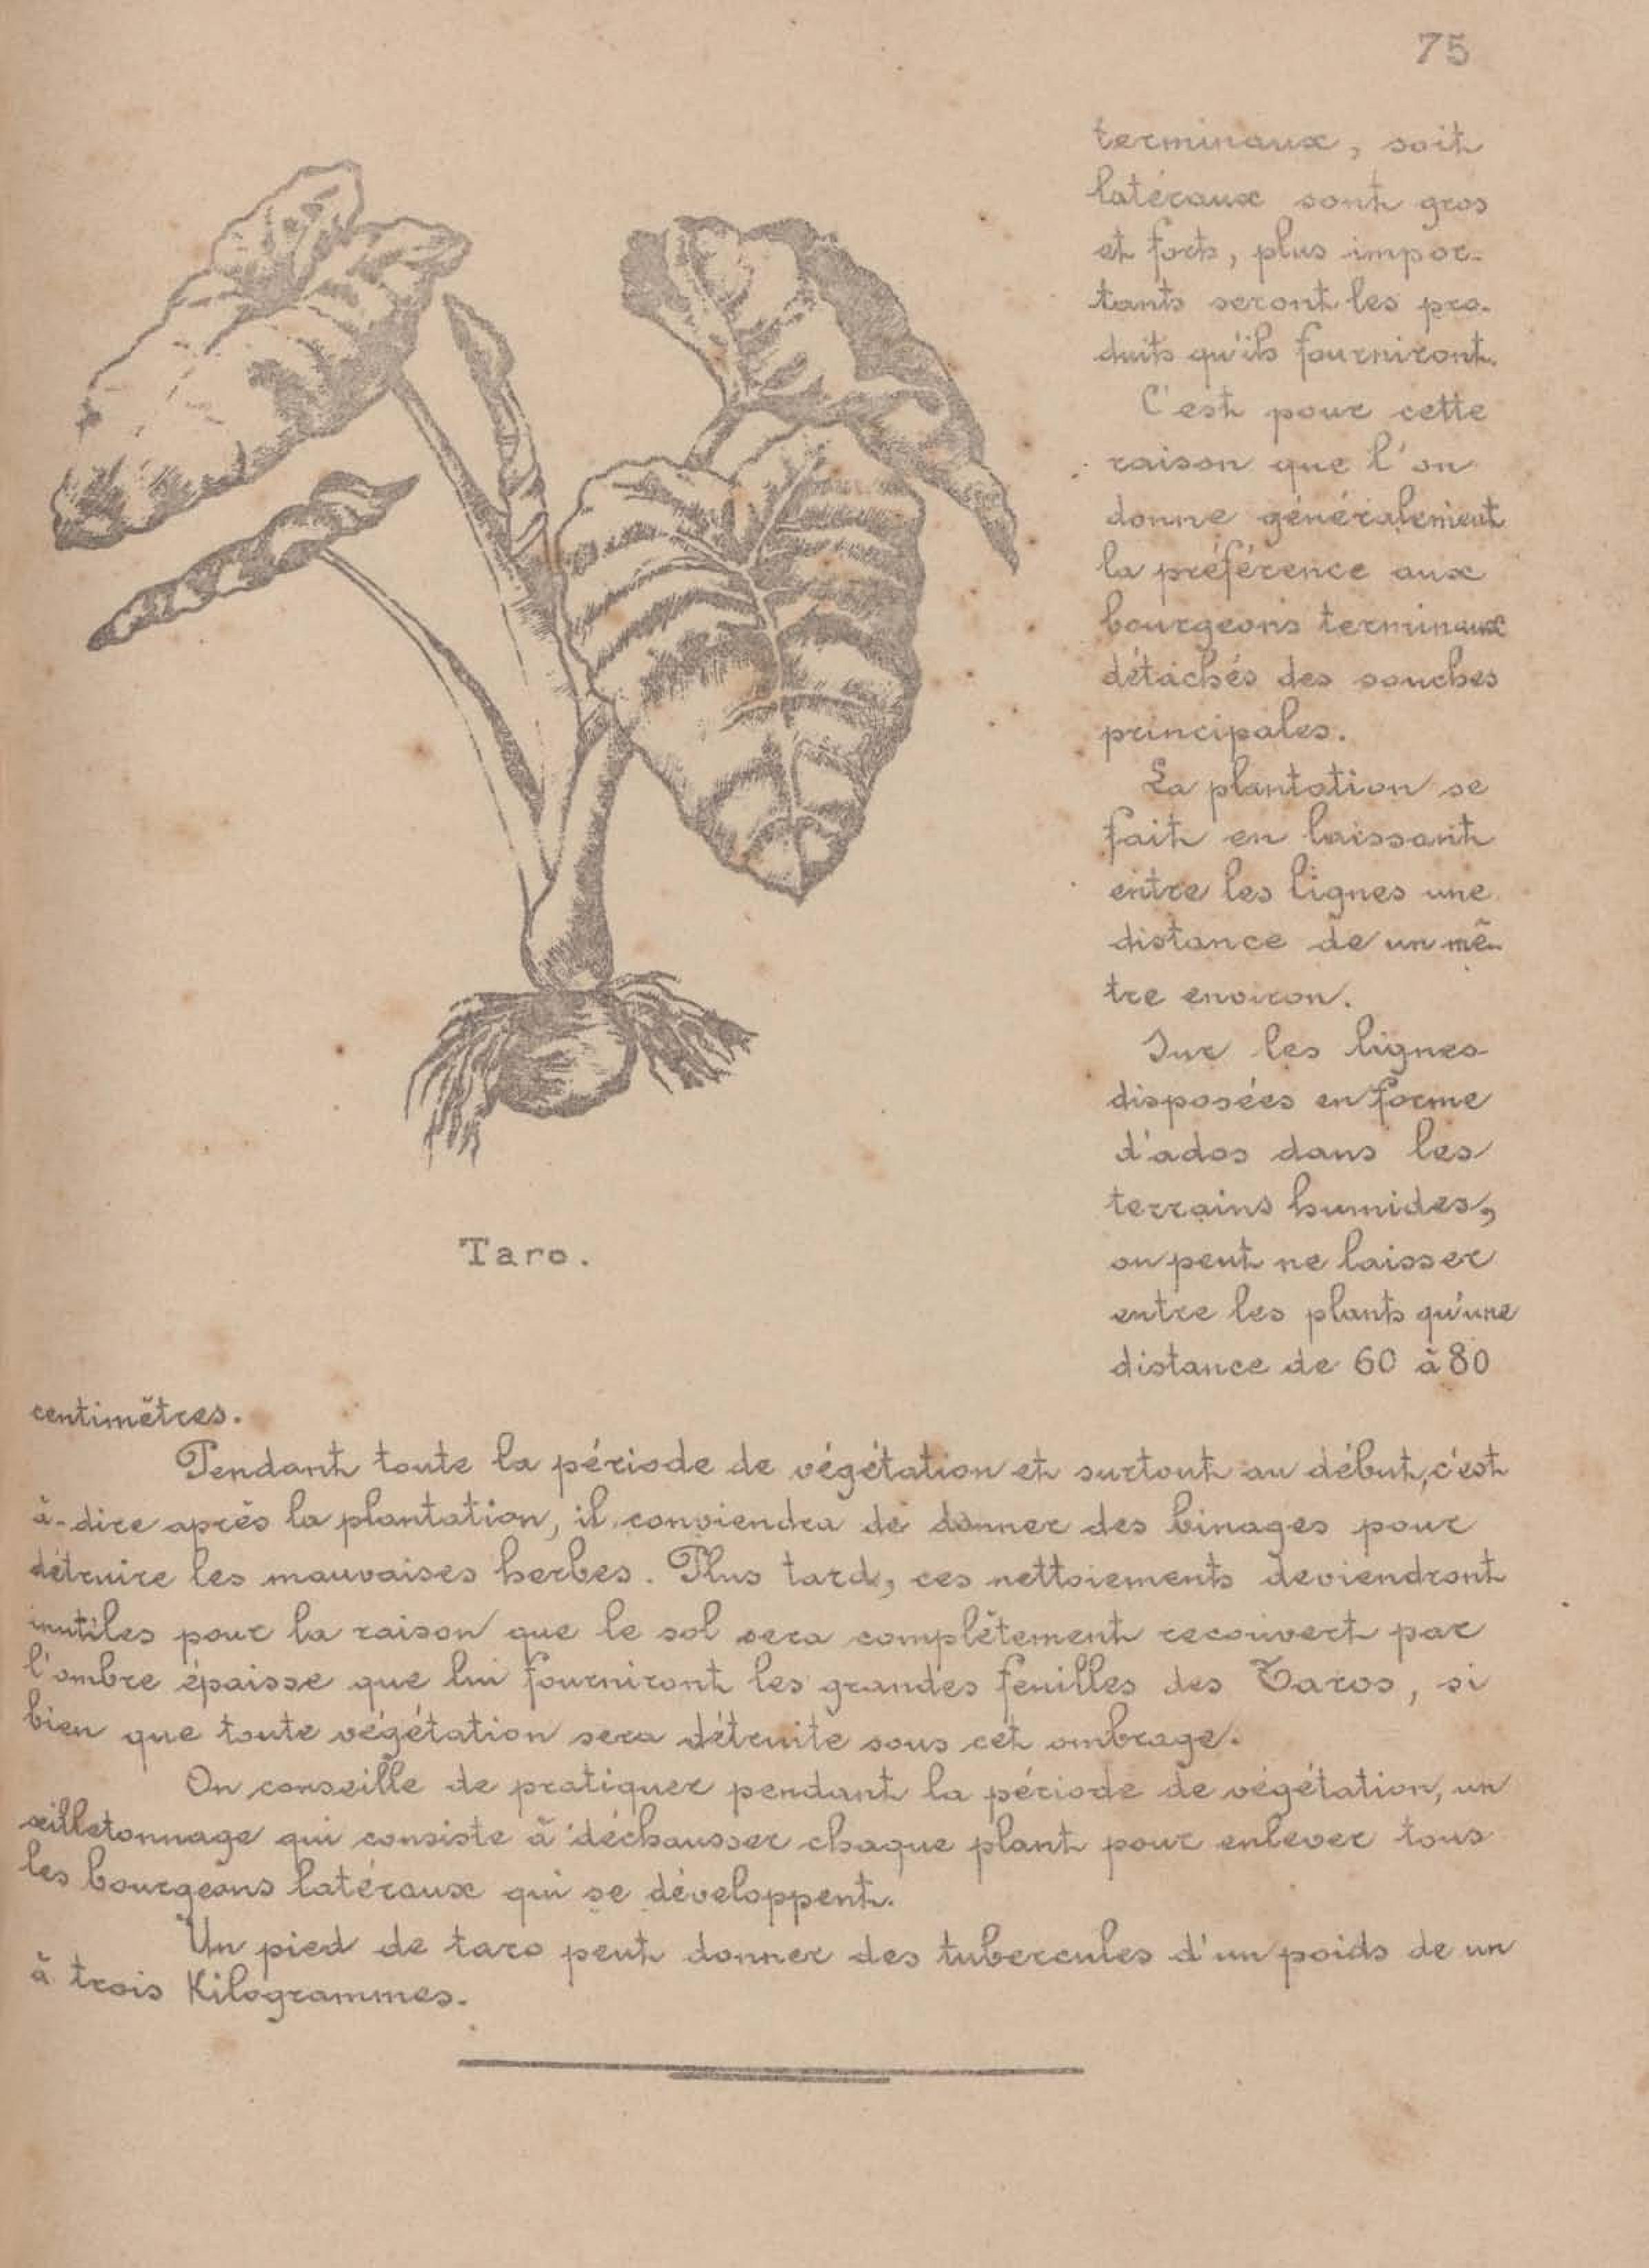 75
terminaux, soit
latéraux sont gros
et forts, plus impor-
tants seront les pro-
duits qu'ils fourniront.
C'est pour cette
raison que l'on
donne généralement
la préférence aux
bourgeons terminaux
détachés des souches
principales.
La plantation se
fait en laissant
entre les lignes une
distance de un mè-
tre environ.
Sur les lignes
disposées en forme
d'ados dans les
terrains humides,
on peut ne laisser
entre les plants qu'une
distance de 60 à 80
Taro.
centimètres.
Pendant toute la période de végétation et surtout au début, c'est
à-dire après la plantation, il conviendra de donner des binages pour
détruire les mauvaises herbes. Plus tard, ces nettoiements deviendront
inutiles pour la raison que le sol sera complètement recouvert par
l'ombre épaisse que lui fourniront les grandes feuilles des Taros, si
bien que toute végétation sera détruite sous cet ombrage.
On conseille de pratiquer pendant la période de végétation, un
œilletonnage qui consiste à déchausser chaque plant pour enlever tous
les bourgeons latéraux qui se développent.
Un pied de taro peut donner des tubercules d'un poids de un
à trois Kilogrammes.